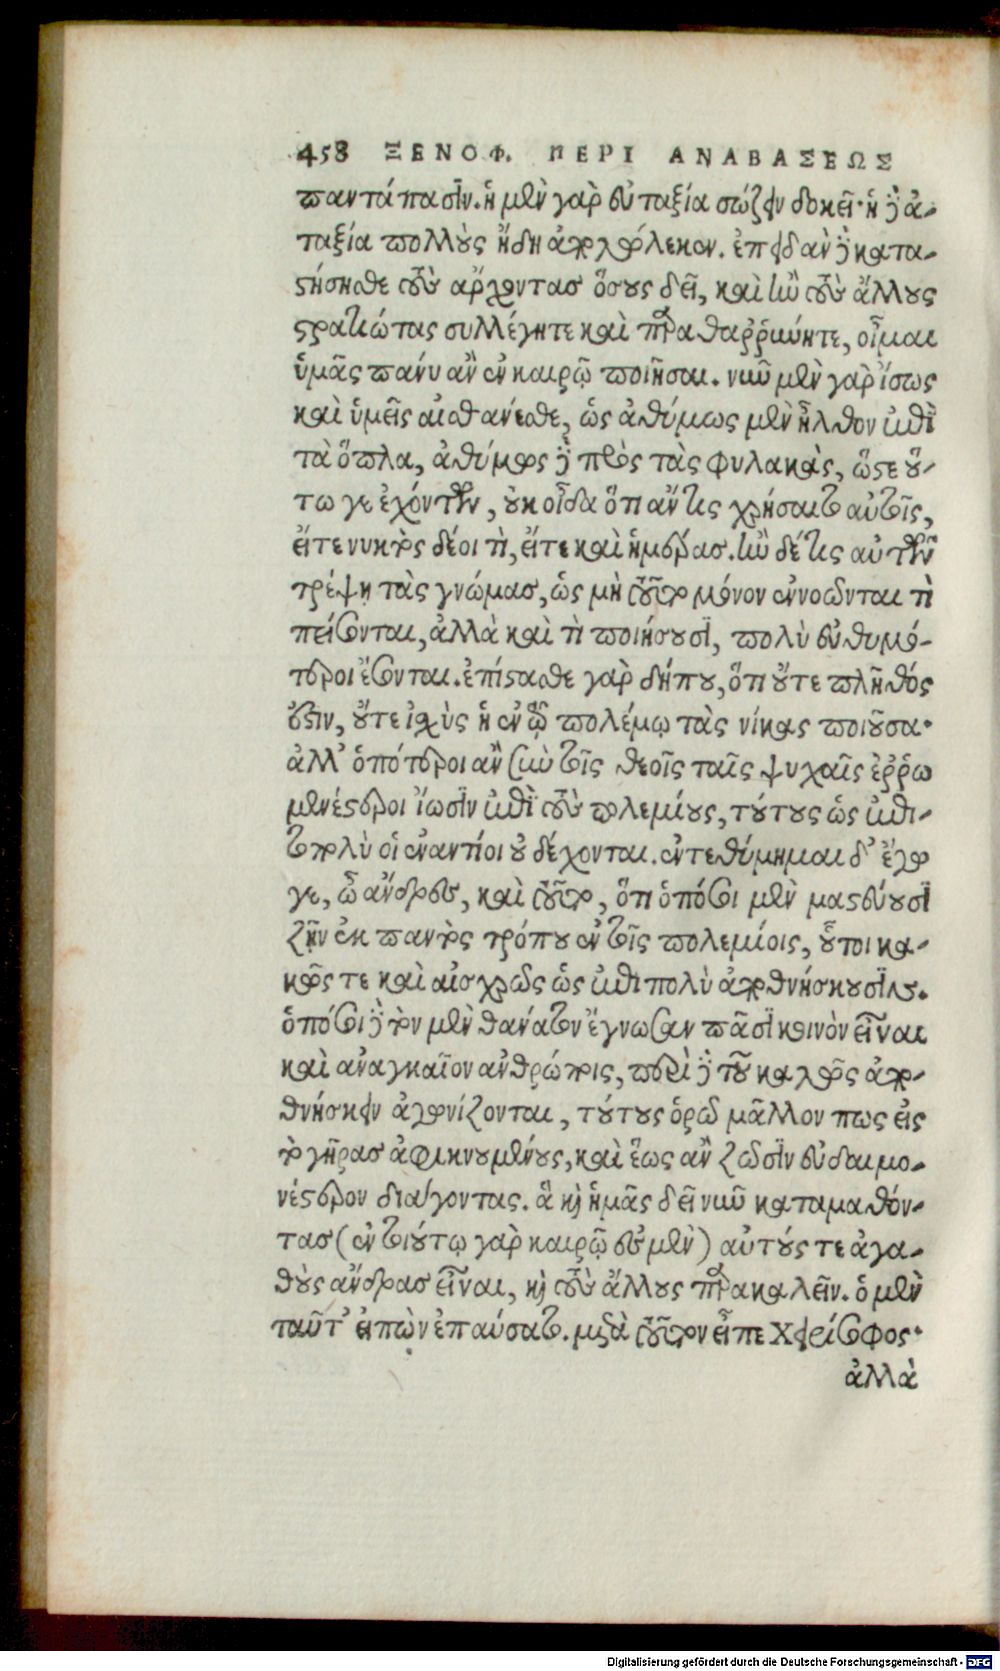 458 ΞΕΝΟΦ. ΠΕΡΙ ΑΝΑΒΑΣΕΩΣ
παντάπασιν. ἡ μὲν γὰρ εὐταξία σώζειν δοκεῖ· ἡ δὲ ἀ-
ταξία πολλοὺς ἤδη ἀπολώλεκεν. ἐπειδὰν δὲ κατα-
στήσησθε τοὺς ἄρχοντας ὅσους δεῖ, καὶ ἢν τοὺς ἄλλους
στρατιώτας συλλέγητε καὶ παραθαῤῥύνητε, οἶμαι
ὑμᾶς πάνυ ἂν ἐν καιρῷ ποιῆσαι. νῦν μὲν γὰρ ἴσως
καὶ ὑμεῖς αἰσθάνεσθε, ὡς ἀθύμως μὲν ἦλθον ἐπὶ
τὰ ὅπλα, ἀθύμως δὲ πρὸς τὰς φυλακὰς, ὥστε οὕ-
τω γε ἐχόντων, οὐκ οἶδα ὅτι ἄν τις χρήσαιτο αὐτοῖς,
εἴτε νυκτὸς δέοι τὶ, εἴτε καὶ ἡμέρας. ἢν δέ τις αὐτῶν
τρέψῃ τὰς γνώμας, ὡς μὴ τοῦτο μόνον ἐννοῶνται τὶ
πείσονται, ἀλλὰ καὶ τὶ ποιήσουσι, πολὺ εὐθυμό-
τεροι ἔσονται. ἐπίστασθε γὰρ δήπου, ὅτι οὔτε πλῆθός
ἐστιν, οὔτε ἰσχὺς ἡ ἐν τῷ πολέμῳ τὰς νίκας ποιοῦσα·
ἀλλ' ὁπότεροι ἂν σὺν τοῖς θεοῖς ταῖς ψυχαῖς ἐῤῥω
μενέστεροι ἴωσιν ἐπὶ τοὺς πολεμίους, τούτους ὡς ἐπι-
τοπολὺ οἱ ἐναντίοι οὐ δέχονται. ἐντεθύμημαι δ' ἔγω
γε, ὦ ἄνδρες, καὶ τοῦτο, ὅτι ὁπόσοι μὲν μαστεύουσι
ζῆν ἐκ παντὸς τρόπου ἐν τοῖς πολεμίοις, οὗτοι κα-
κῶς τε καὶ αἰσχρῶς ὡς ἐπιπολὺ ἀποθνήσκουσιν.
ὁπόσοι δὲ τὸν μὲν θάνατον ἔγνωσαν πᾶσι κοινὸν εἶναι
καὶ ἀναγκαῖον ἀνθρώποις, περὶ δὲ τοῦ καλῶς ἀπο-
θνήσκειν ἀγωνίζονται, τούτους ὁρῶ μᾶλλον πως εἰς
τὸ γῆρας ἀφικνουμένους, καὶ ἕως ἂν ζῶσιν εὐδαιμο-
νέστερον διάγοντας. ἃ καὶ ἡμᾶς δεῖ νῦν καταμαθόν-
τας (ἐν τοιούτῳ γὰρ καιρῷ ἐσμὲν) αὐτούς τε ἀγα-
θοὺς ἄνδρας εἶναι, καὶ τοὺς ἄλλους παρακαλεῖν. ὁ μὲν
ταῦτ' εἰπὼν ἐπαύσατο. μετὰ τοῦτον εἶπε Χειρίσοφος·
ἀλλὰ
Digitalisierung gefördert durch die Deutsche Forschungsgemeinschaft - DFG